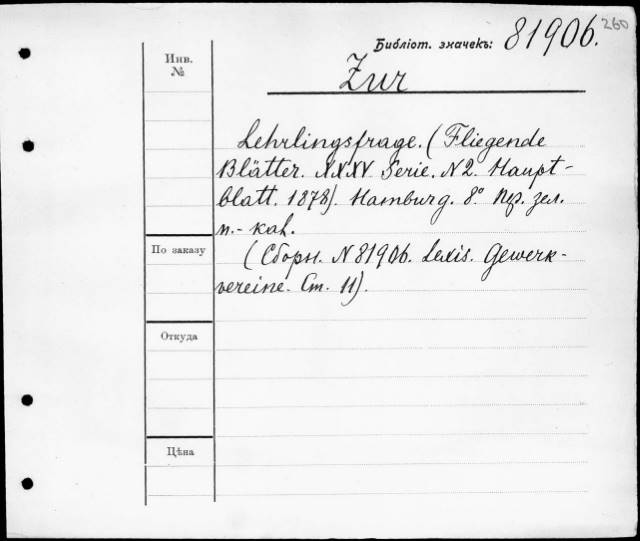 260
Библіот. значекъ: 81906.
Инв.
№
Zur
Lehrlingsfrage. (Fliegende
Blätter. XXXV Serie. N 2. Haupt-
blatt. 1878). Hamburg. 8° Пр. зел.
п.-кал.
По заказу
(Сборн. N 81906. Lexis. Gewerk-
vereine. Ст. 11).
Откуда
Цѣна